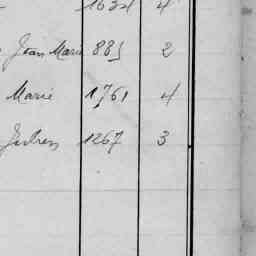 1634 4
Jean Marie 885 2
Marie 1761 4
Julien 1267 3